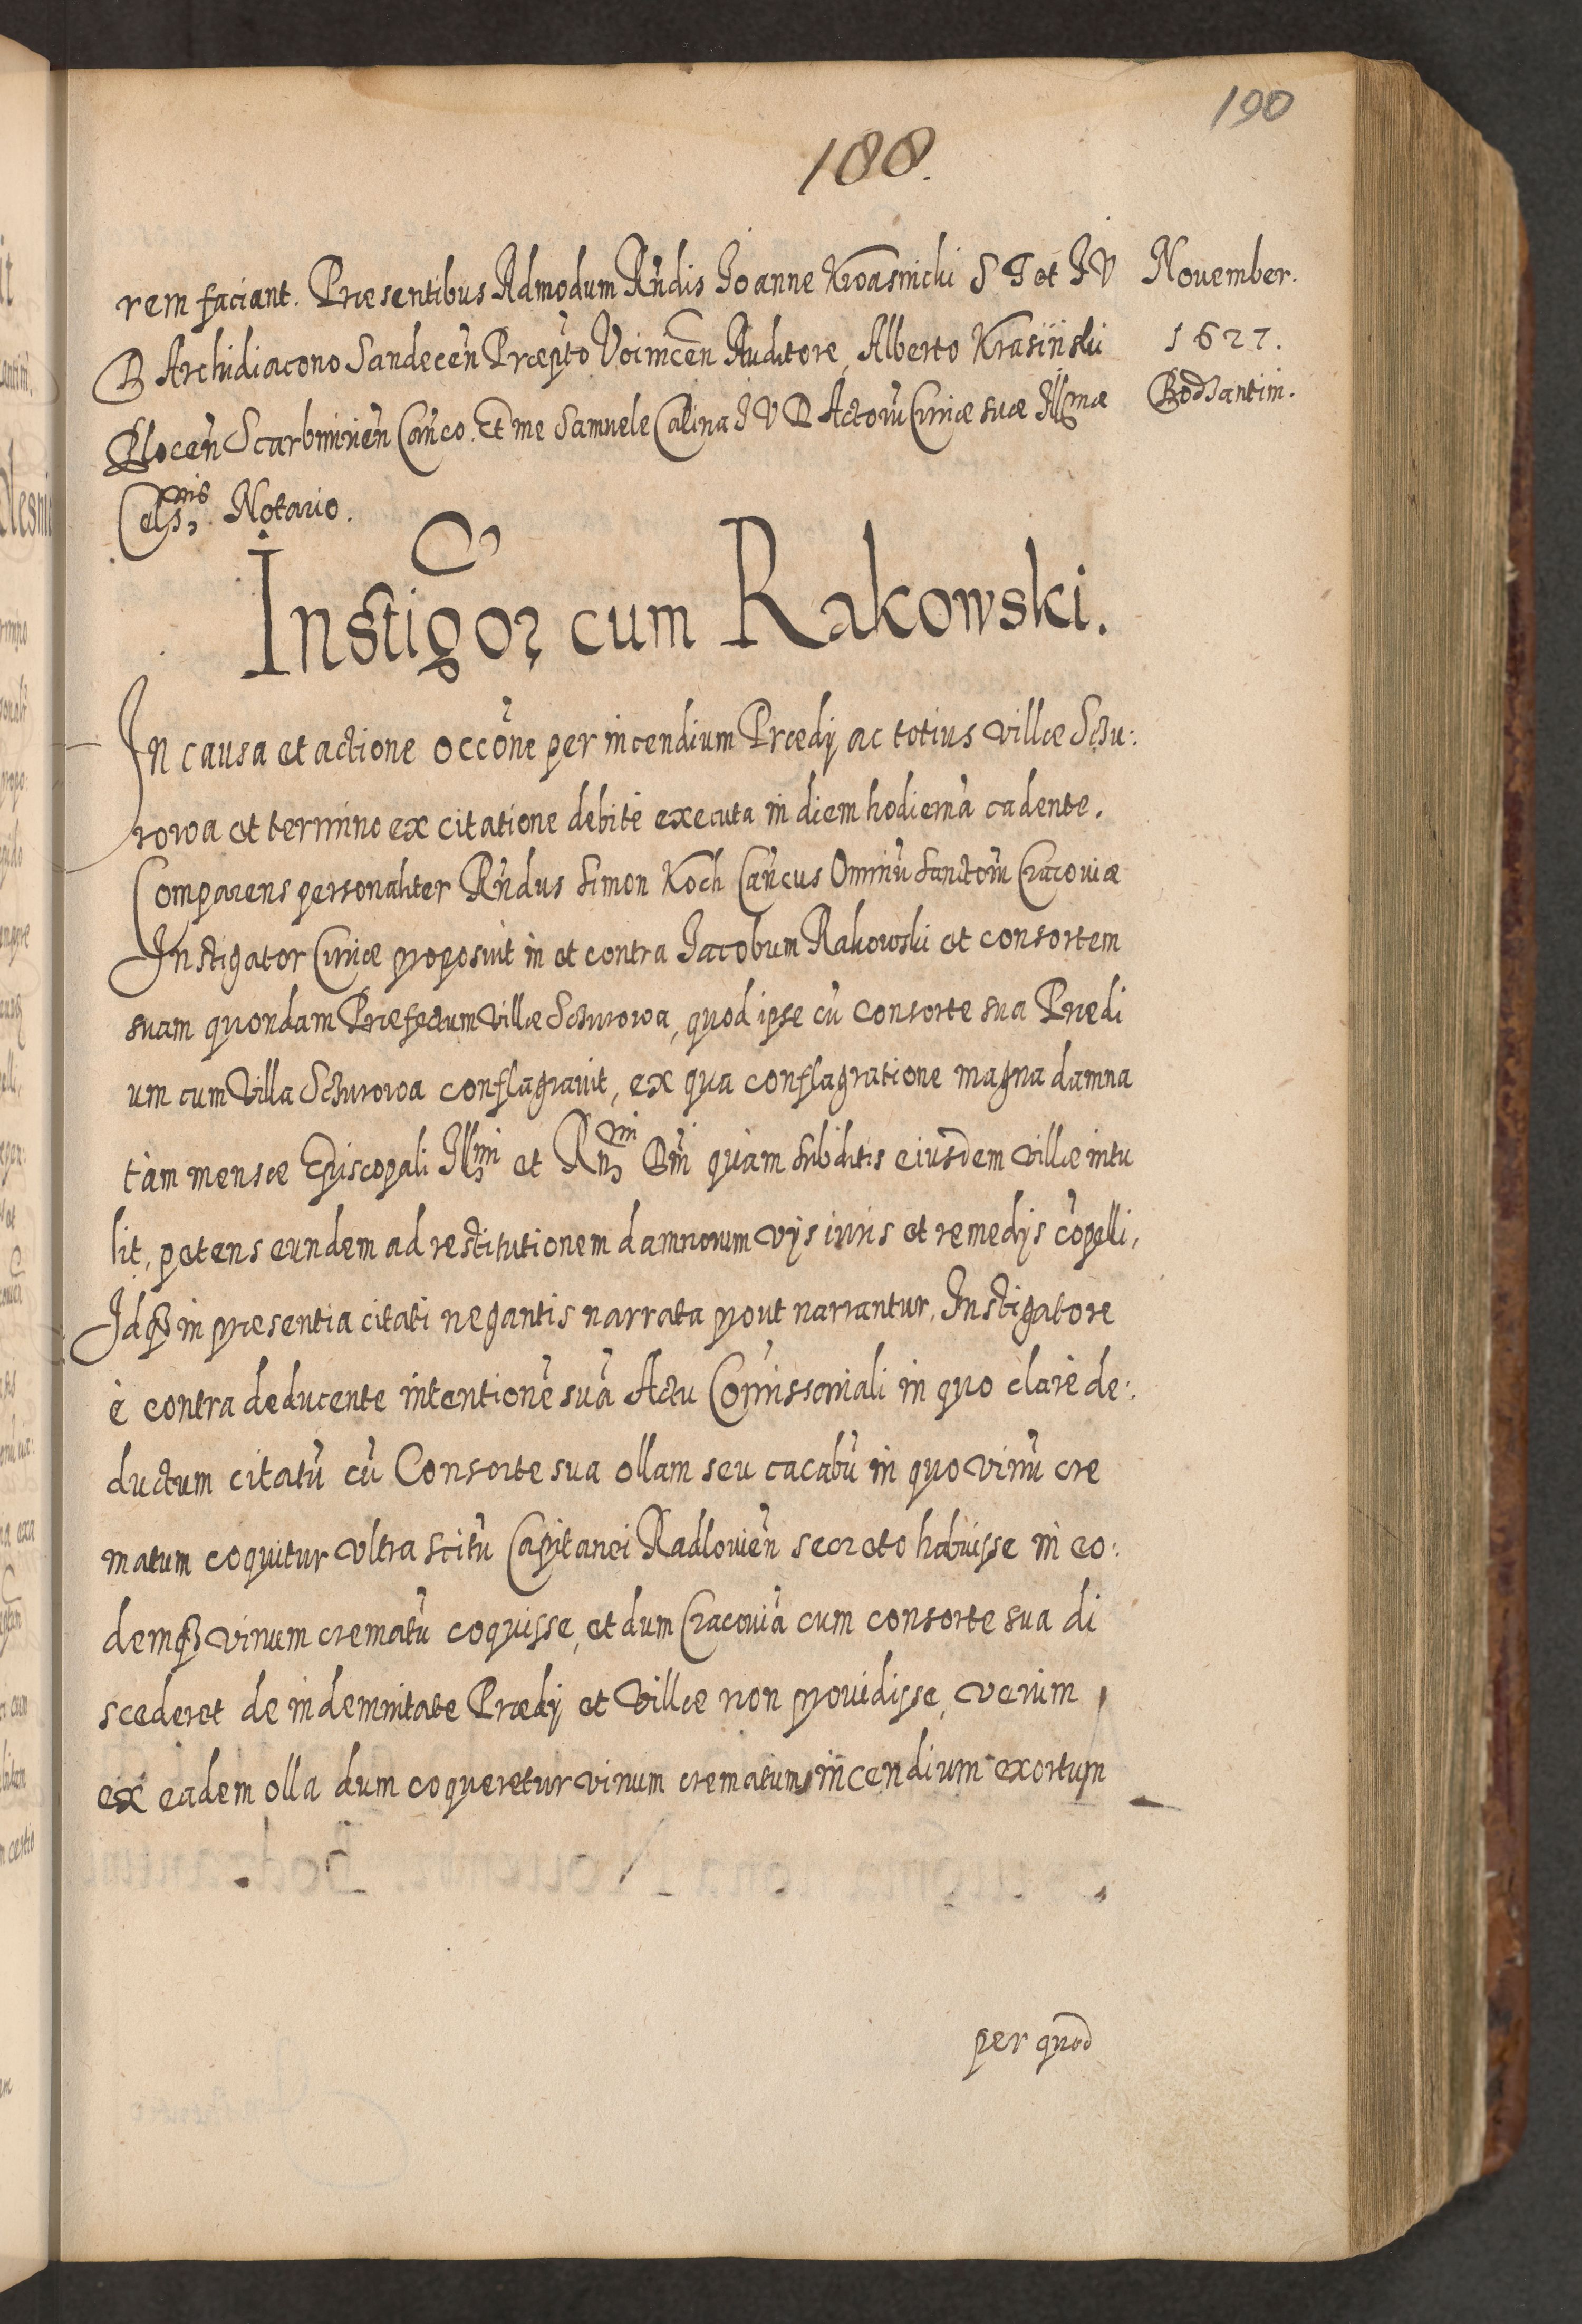 190
188.
rem faciant. Præsentibus Admodum Rńdis Joanne Kroasnicki S T et J V
D Archidiacono Sandeceń Præpto Voinicen Auditore, Alberto Krasiński
Ploceń Scarbimirień Cańco. Et me Samuele Calina J V D Actorū Curiæ suæ Illmæ
Cels:nis Notario.
November.
1627.
Bodzantin.
Instigor cum Rakowski.
In causa et actione occōne per incendium Prædij ac totius villæ Sczu:
rowa et termino ex citatione debitè executa in diem hodiernā cadente.
Comparens personaliter Rńdus Simon Koch Cańcus Omniū Sanctorū Cracouiæ
Instigator Curiæ proposuit in et contra Jacobum Rakowski et consortem
suam quondam Præfectum villæ Sczurowa, quod ipse cū consorte sua Prædi
um cum Villa Sczurowa conflagrauit, ex qua conflagratione magna damna
tàm mensæ Episcopali Illmi et Rńmi Dńi quàm subditis eiusdem villæ intu
lit, petens eundem ad restitutionem damnorum vijs iuris et remedijs cōpelli,
Idq3 in præsentia citati negantis narrata prout narrantur. Instigatore
è contra deducente intentionē suā Actu Comissoriali in quo clarè de:
ductum citatū cū Consorte sua ollam seu cacabū in quo vinū cre
matum coquitur vltra scitū Capitanei Radlouień secreto habuisse in eo:
demq3 vinum crematū coquisse, et dum Cracouiā cum consorte sua di
scederet de indemnitate Prædij et Villæ non prouidisse, verùm
ex eadem olla dum coqueretur vinum crematum incendium exortum
per quod